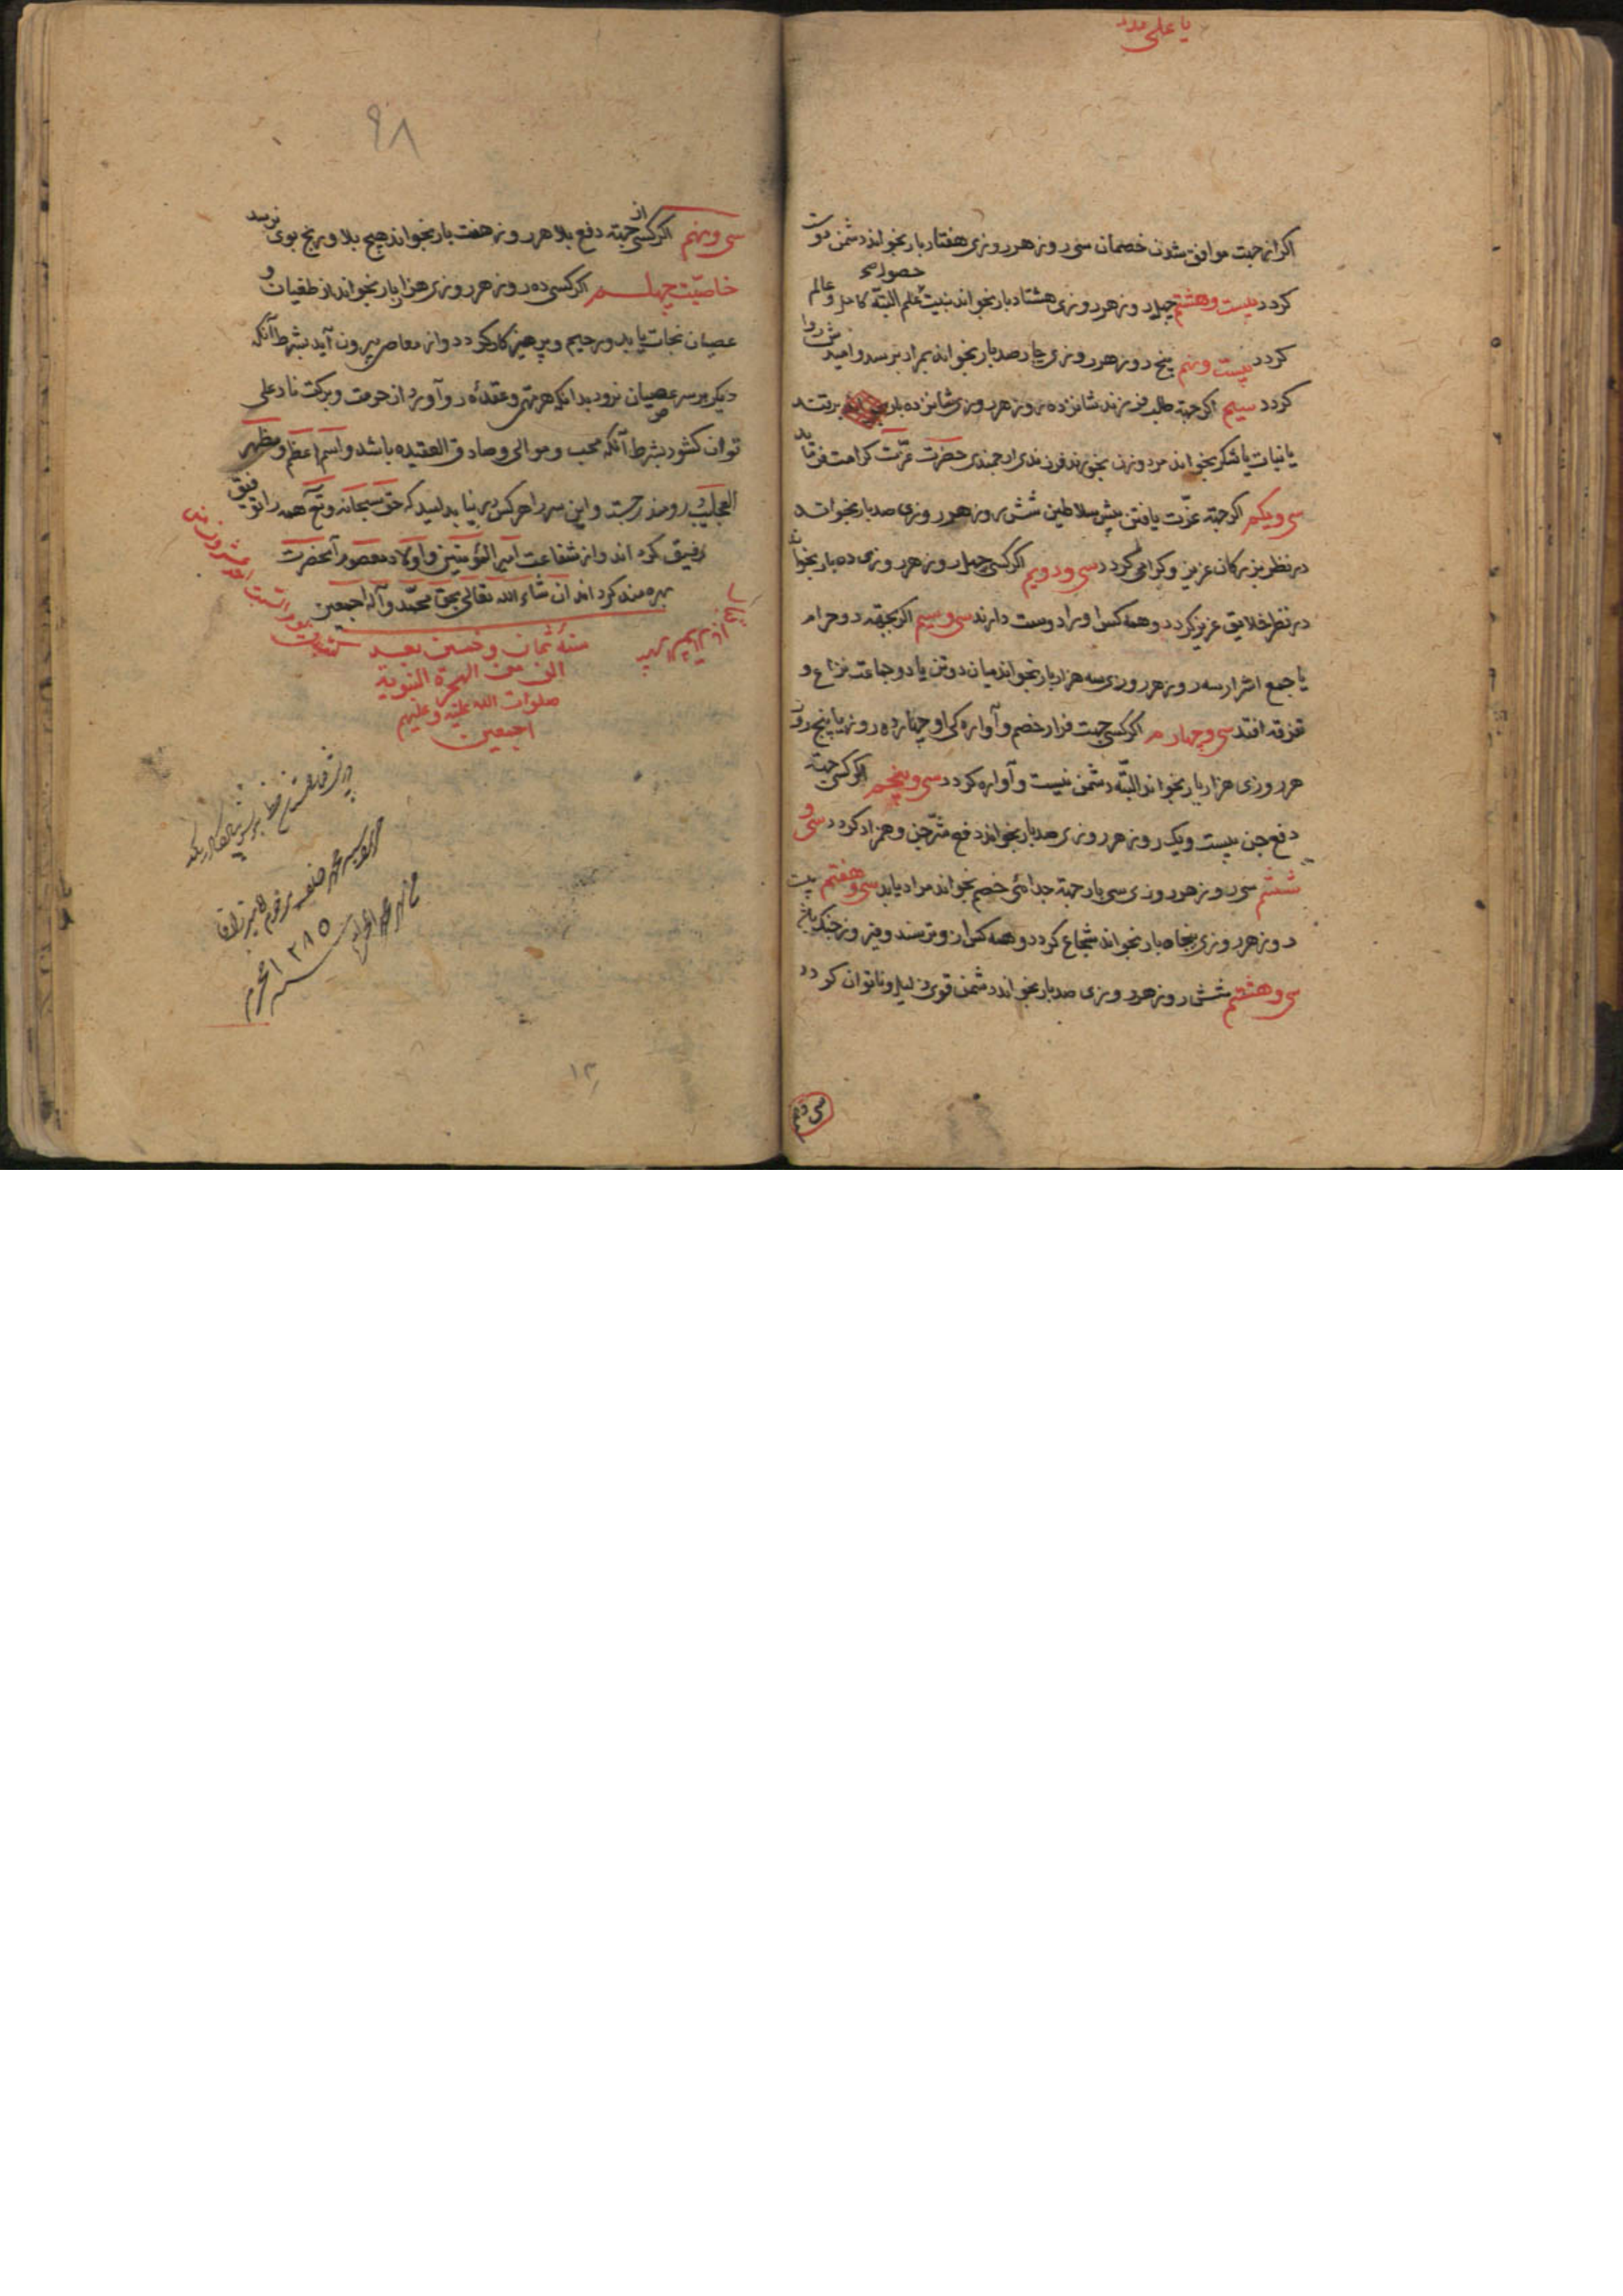 یا علی مدد
اکر از جهت موافق شدن خصمان سی روز هر روزی هفتاد بار بخواند دشمن دوست
کردد بیست و هشتم چهل روز هر روزی هشتاد بار بخواند بنیت حصول علم البته کامل و عالم
کردد بیست و نهم پنج روز هر روزی چهارصد بار بخواند بمراد برسد و امیدش روا
کردد سیم اکر جهته طلب فرزند شانزده روز هر روزی شانزده بار
یا نبات یا شکر بخواند مرد و زن بخورند فرزندی ارجمندی حضرت عزّت کرامت فرماید
سی و یکم اکر جهته عزّت یافتن پیش سلاطین شش روز هر روزی صد بار بخواند
در نظر بزرکان عزیز و کرامی کردد سی و دویم اکر کسی چهل روز هر روزی ده بار بخواند
در نظر خلایق عزیز کردد و همه کس او را دوست دارند سی و سیم اکر بجهته دو حرام
یا جمع اشرار سه روز هر روزی سه هزار بار بخواند میان دو تن یا دو جماعت نزاع و
تفرقه افتد سی و چهارم اکر کسی جهت فرار خصم و آواره کی او چهارده روز یا پنج روز
هر روزی هزار بار بخواند البتّه دشمن نیست و آواره کردد سی و پنجم اکر کسی جهته
دفع جن بیست و یک روز هر روزی صد بار بخواند دفع شرّ جن و همزاد کردد سی و
ششم سی روز هر روزی سی بار جهته جدائی خصم بخواند مراد یابد سی و هفتم بیست
روز هر روزی پنجاه بار بخواند شجاع کردد و همه کس از و ترسند و فیروز جنک باشد
سی و هشتم شش روز هر روزی صد بار بخواند دشمن قوی ذلیل و ناتوان کردد
سی و نهم
۹۸
سی و نهم اکر کسی از جهته دفع بلا هر روز هفت بار بخواند هیچ بلا و رنج بوی نرسد
خاصیّت چهلم اکر کسی ده روز هر روزی هزار بار بخواند از طغیان و
عصیان نجات یابد و رحیم و پرهیزکار کردد و از معاصی بیرون آید بشرط آنکه
دیکر بر سر عصیان نرود بدانکه هر مهمی و عقدۀ رو آورد از حرمت و برکت ناد علی
توان کشود بشرط آنکه محب و موالی و صادق العقیده باشد و اسم اعظم و مظهر
العجایب درو مندرجست و این سر را هر کس در نیابد امید که حق سبحانه و تع همه را توفیق
رفیق کرداند و از شفاعت امیر المؤمنین و اولاد معصوم آنحضرت
بهره مند کرداند ان شاء الله تعالی بحق محمّد و آله اجمعین
سنه ثمان و خمسین بعد
الف من الهجرة النبویة
صلوات الله علیه و علیهم
اجمعین
۱۲۸۵ محرم
۱۳